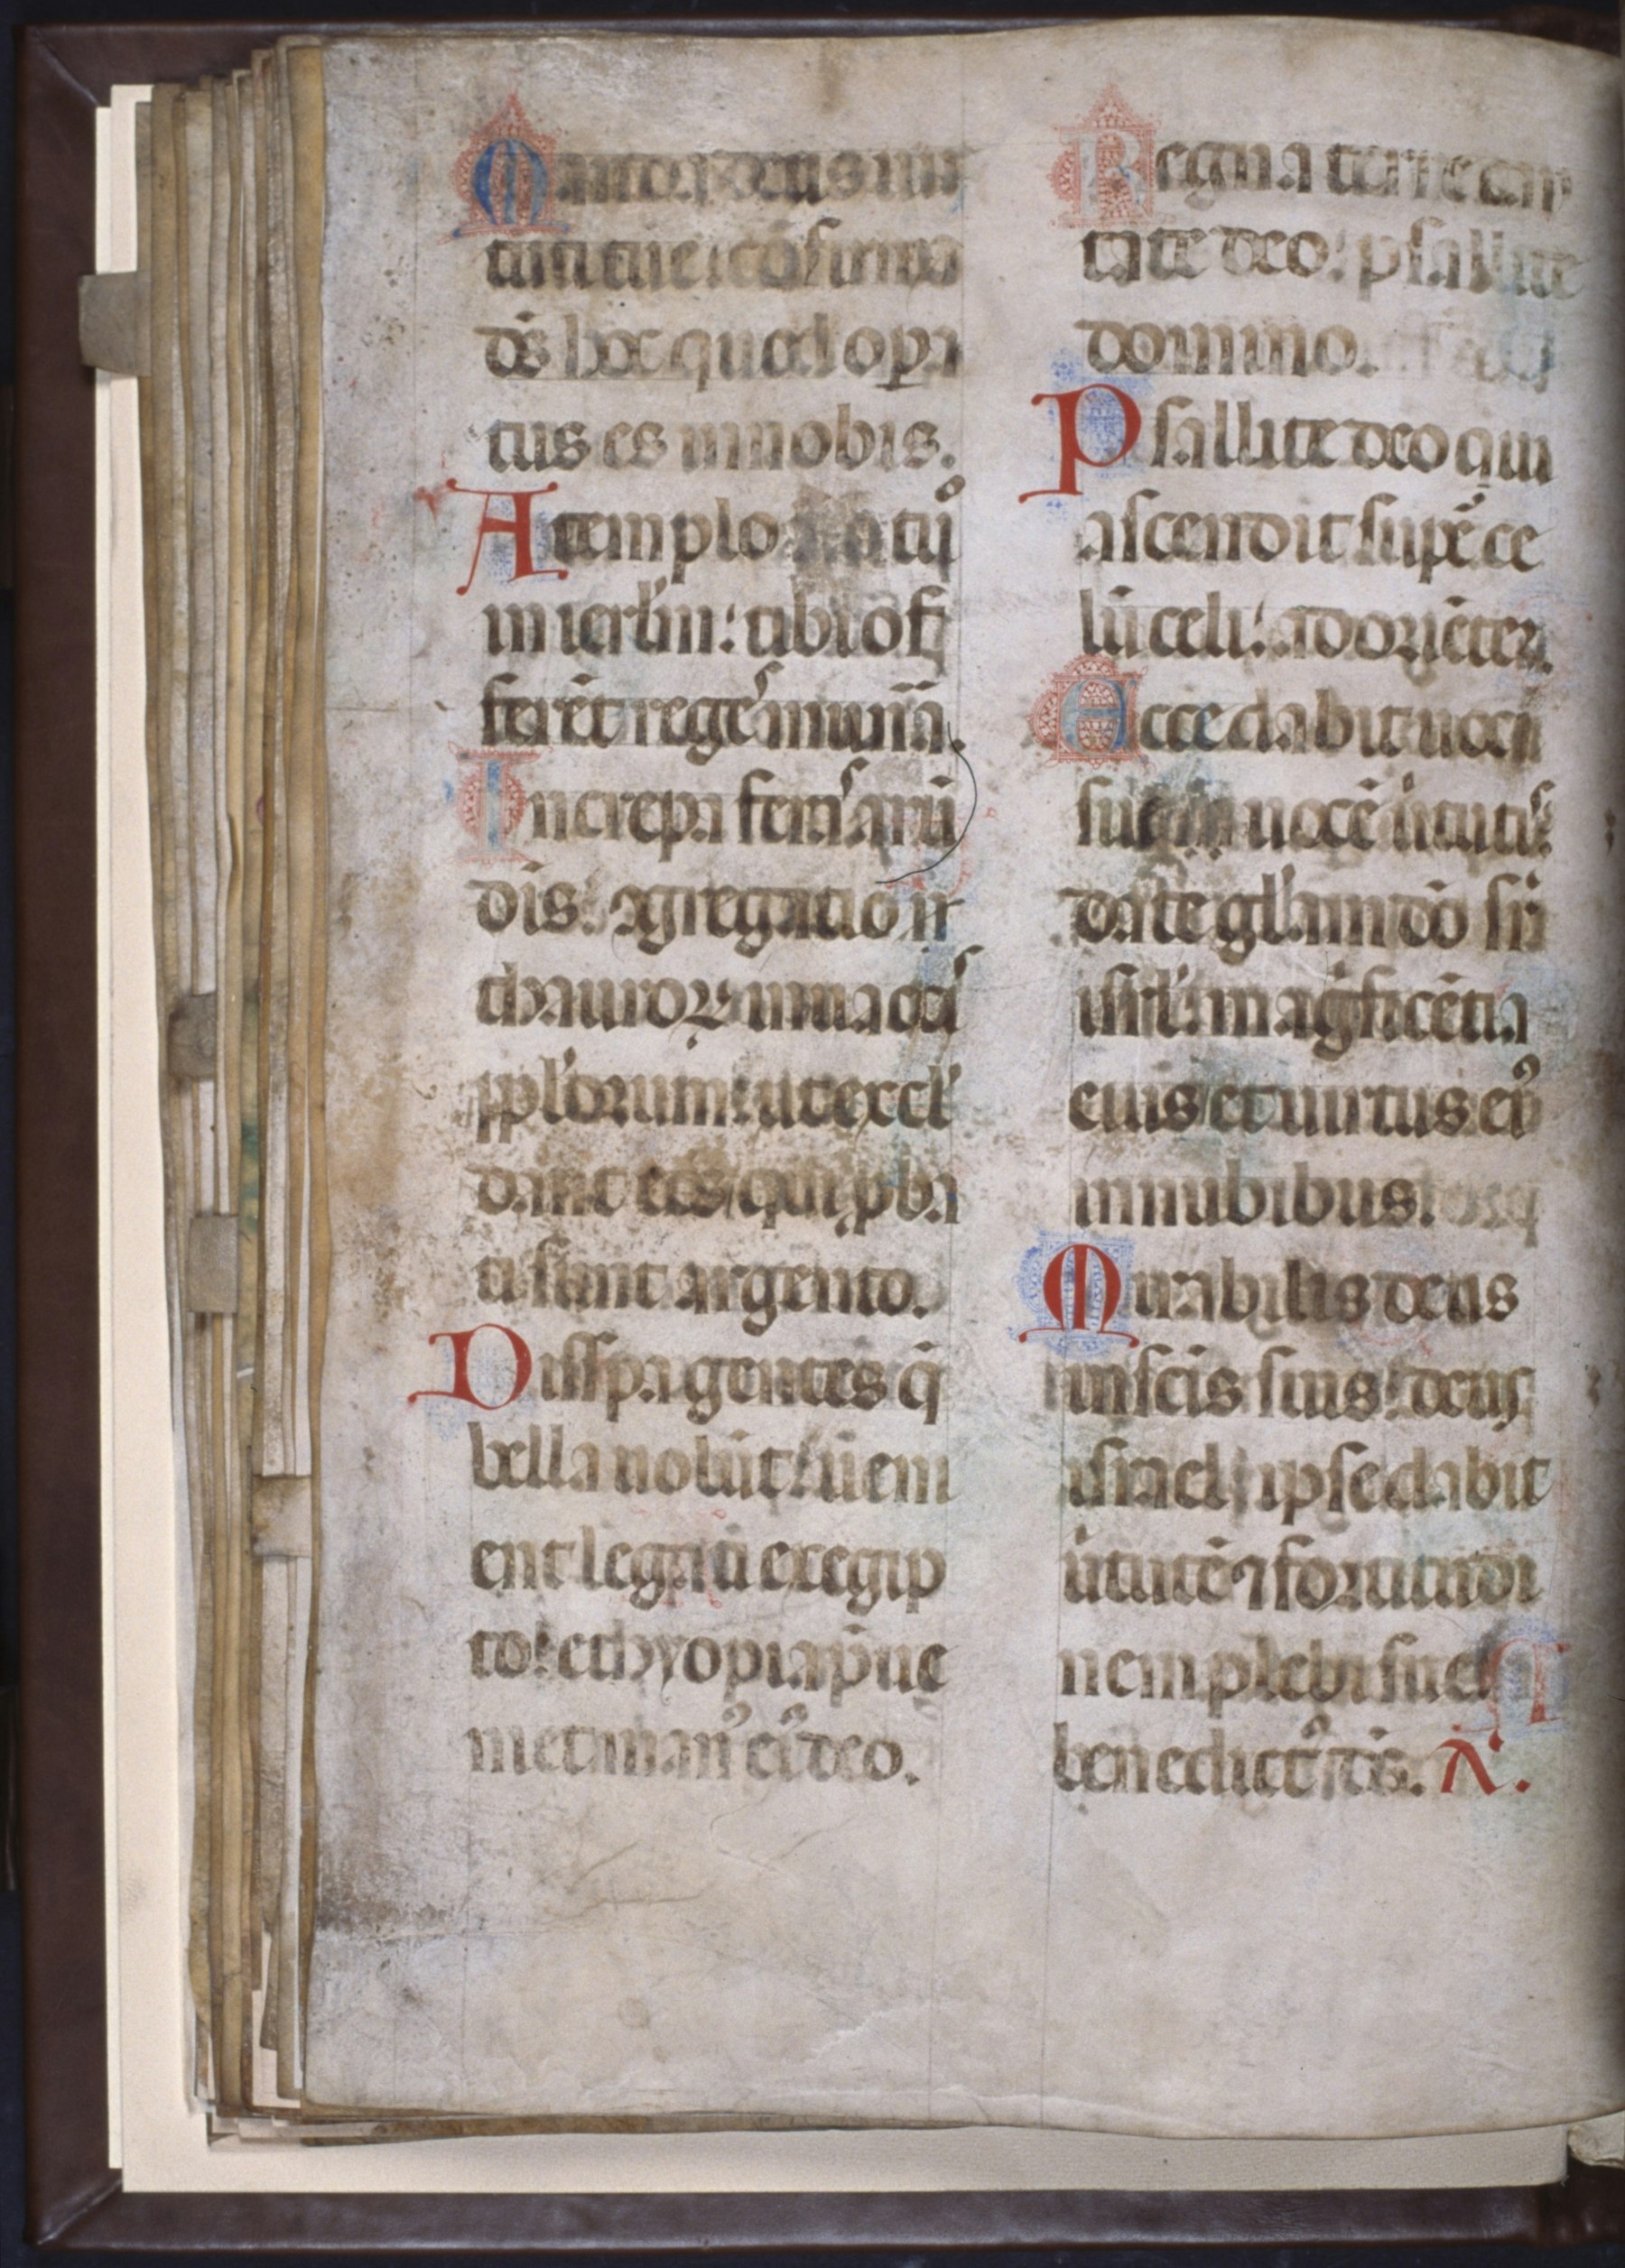 Manda deus uir
tuti tue: cōfirma
ds̄ hoc quod opa
tus es innobis.
A templo tuo
in ierl̄m: tibi of
ferēt reges munīa.
Increpa feras arū
dis: ꝯgregatio
thauroꝝ in uaccis
ppl̄orum: ut excl
dant eos qui ꝓba
ti sunt argento.
Dissipa gentes q̄
bella uolūt: uēni
ent legati ex egip
to: ethyopia p̄ue
niet manꝰ eiꝰ deo.
Regna terre can
tate deo: psallite
domino.
Psallite deo qui
ascendit suꝑ ce
lū celi: ad oriētez.
Ecce dabit uoci
sue uocē uirtutis:
date gl̄iam dō sr̄
isrl̄: magficētia
eius et uirtus eiꝰ
innubibus.
Mirabilis deus
in sc̄is suis: deus
israel ipse dabit
uirtutē ⁊ fortitudi
nem plebi sue
benedictꝰ ds̄.